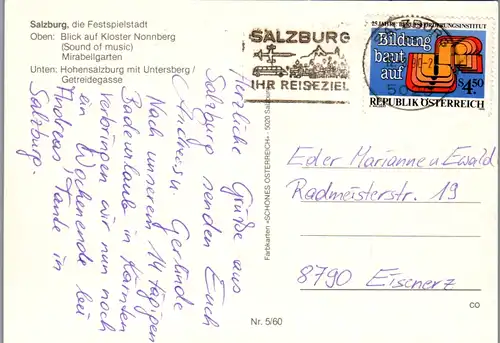 Salzburg, die Festspielstadt
Oben: Blick auf Kloster Nonnberg
(Sound of music)
Mirabellgarten
Unten: Hohensalzburg mit Untersberg /
Getreidegasse
Herzliche Grüße aus
Salzburg senden Euch
Andreas u. Gerlinde
Nach unserem 14 tägigen
Badeurlaub in Kärnten
verbringen wir nun noch
ein Wochenende bei
Andreas' Tante in
Salzburg.
Nr. 5/60
Farbkarten »SCHÖNES ÖSTERREICH« - 5020 Salzburg
SALZBURG
IHR REISEZIEL
5020
25 JAHRE
Bildung
baut
auf
S 4.50
REPUBLIK ÖSTERREICH
Eder Marianne u Ewald
Radmeisterstr. 19
8790 Eisenerz
CO